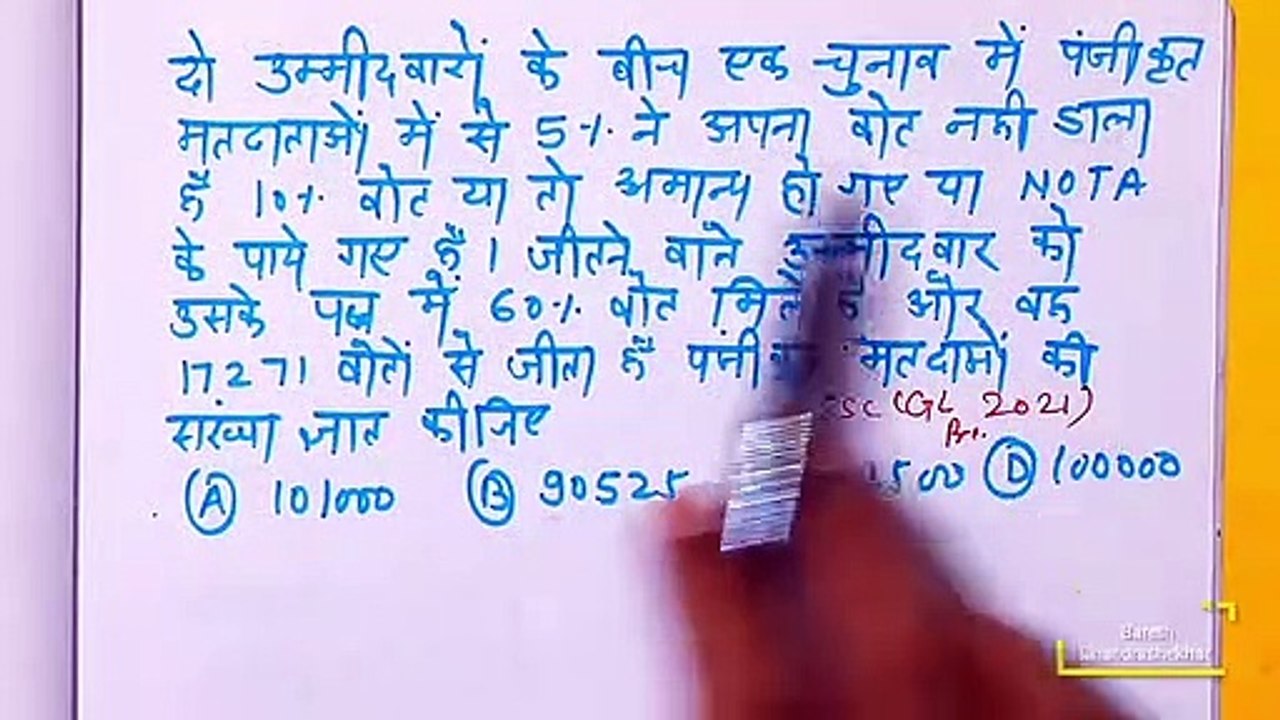 दो उम्मीदवारों के बीच एक चुनाव में पंजीकृत
मतदाताओं में से 5% ने अपना वोट नही डाला
है 10% वोट या तो अमान्य हो गए या NOTA
के पाये गए है। जीतने वाले उम्मीदवार को
उसके पक्ष में 60% वोट मिले है और वह
17271 वोतों से जीता है मतदामों की
संख्या ज्ञात कीजिए
SSC CGL 2021)
Pre.
(A) 101000 (B) 90525 500 (D) 100000